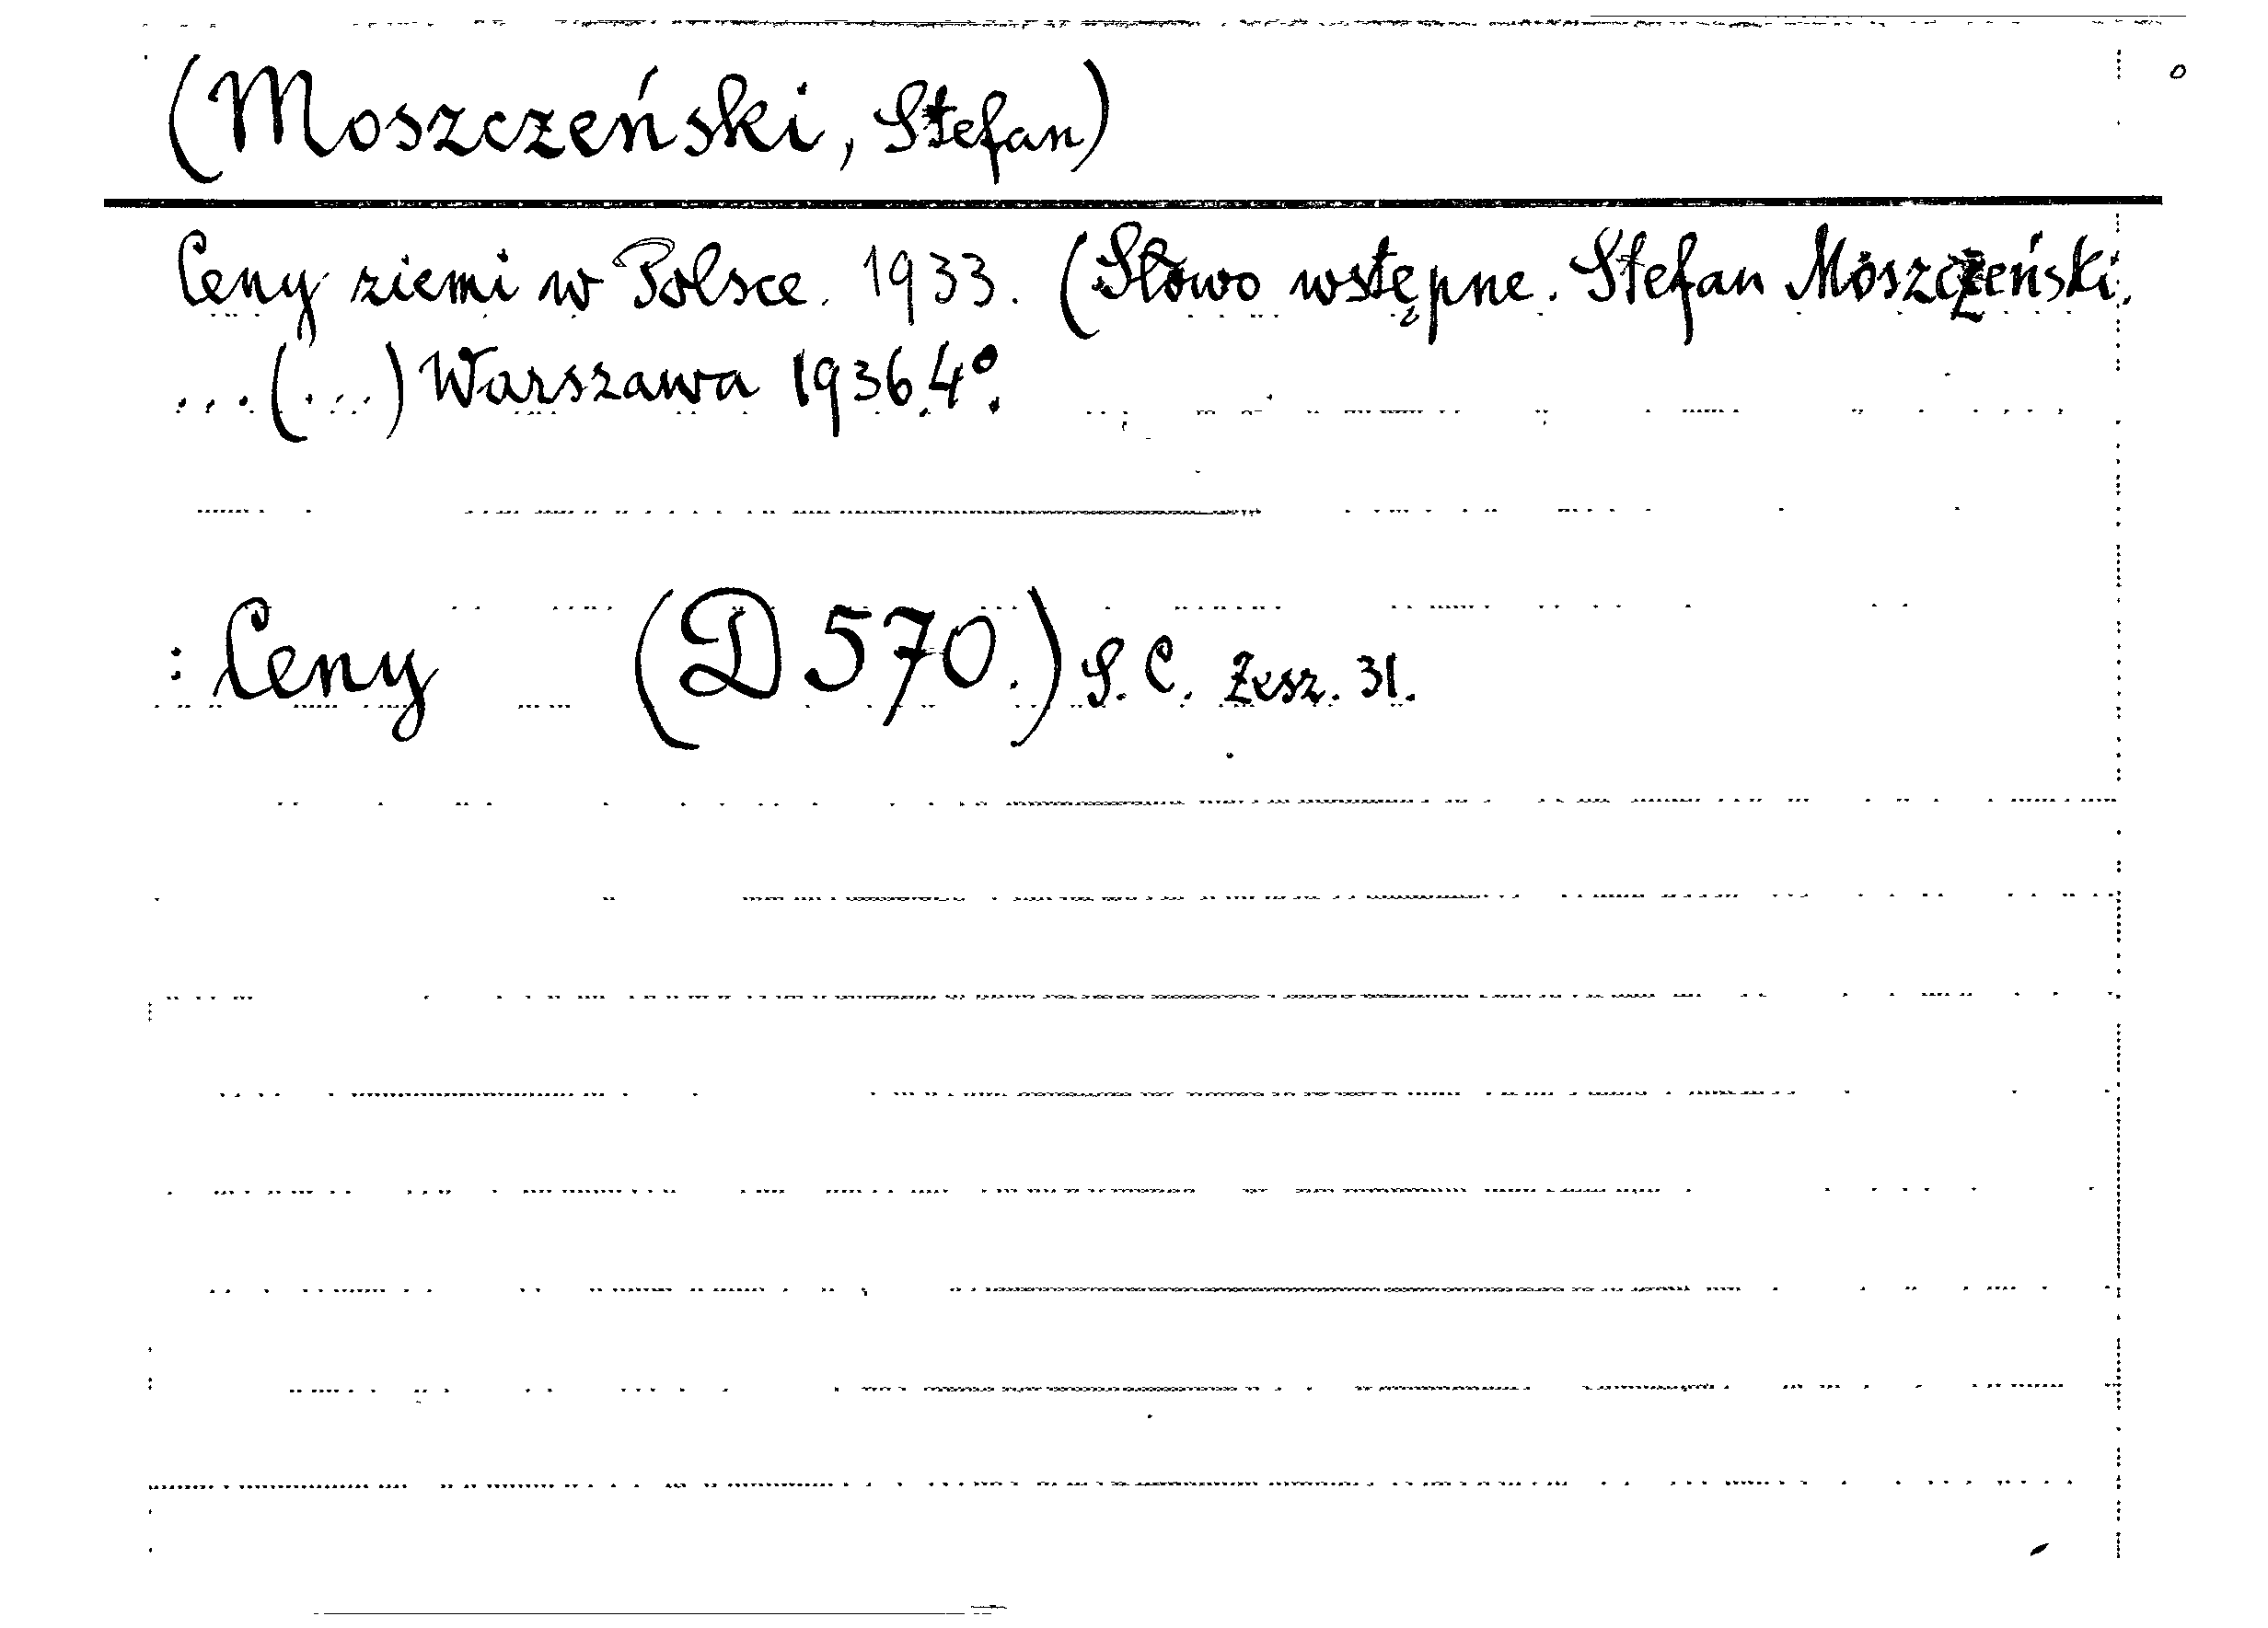 (Moszczeński, Stefan)
Ceny ziemi w Polsce. 1933. (Słowo wstępne. Stefan Moszczeński.
...(...) Warszawa 1936. 4º.
: Ceny (D 570.) S. C. Zesz. 31.